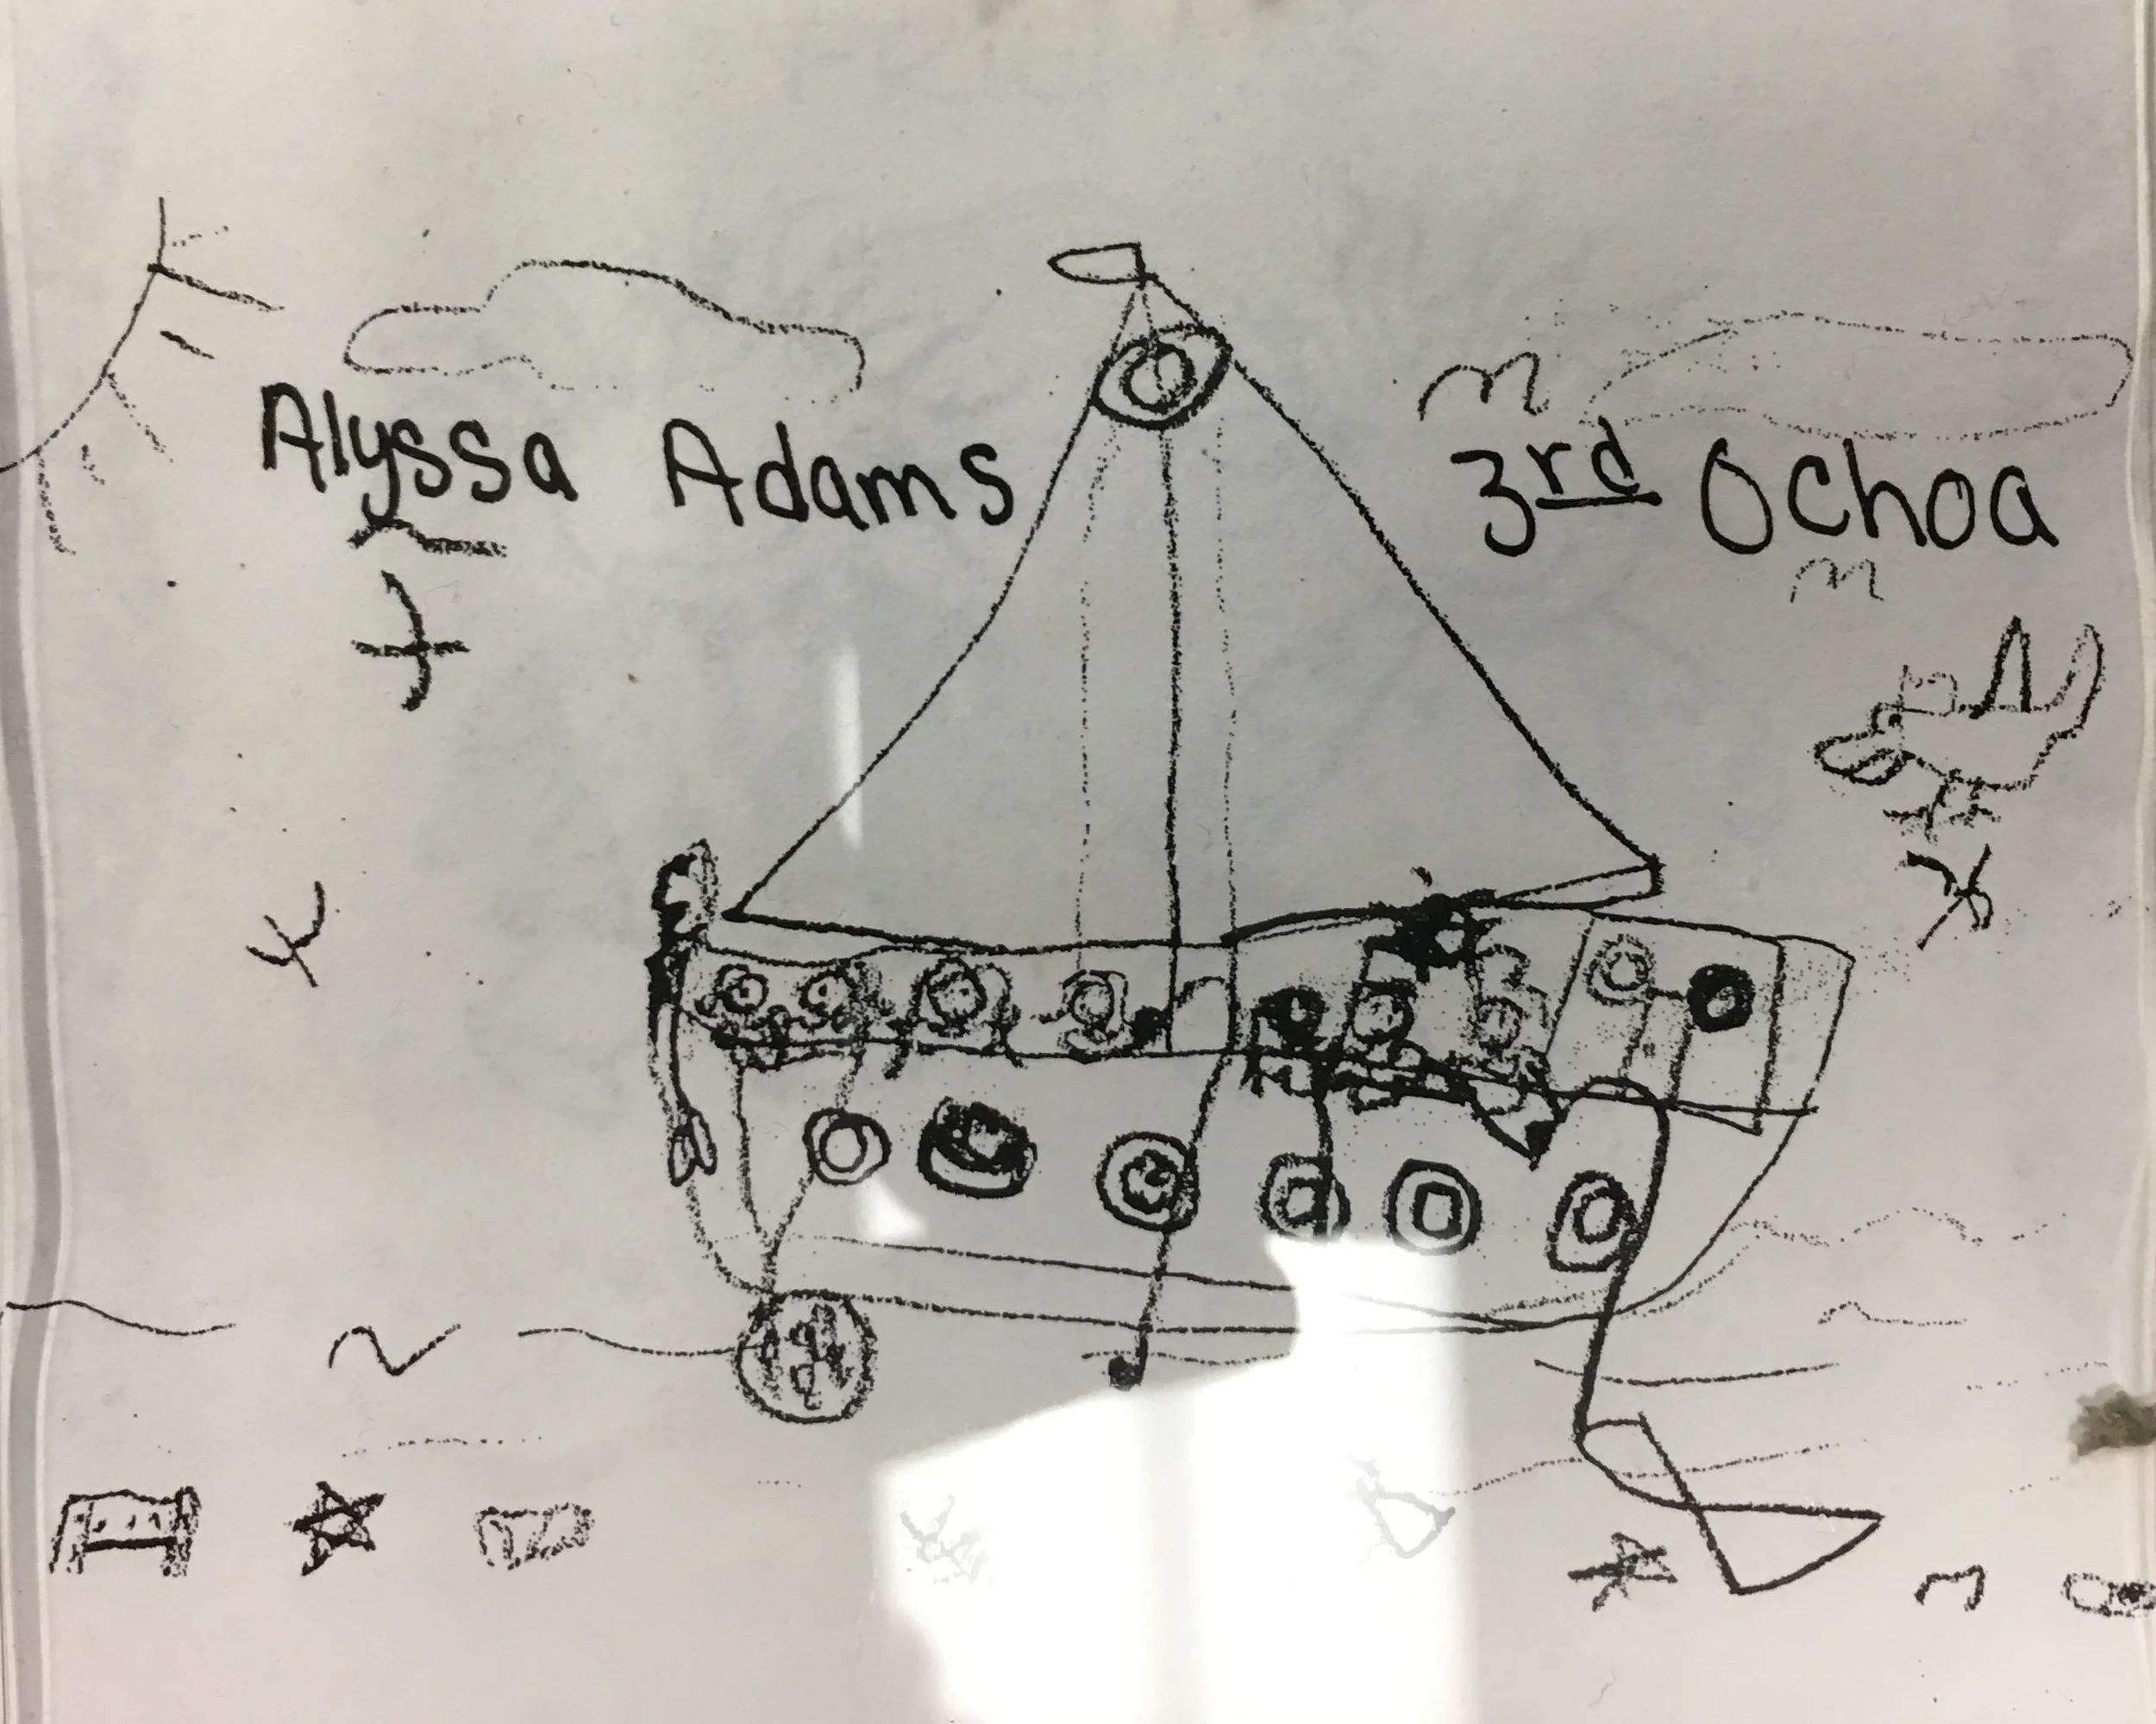 Alyssa Adams
3rd Ochoa